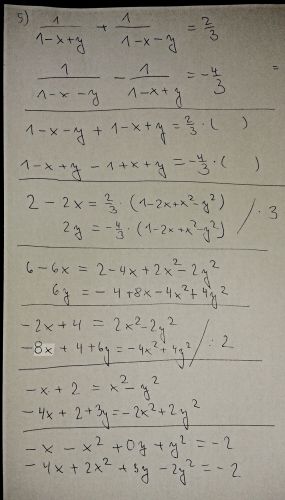 5) 1/(1-x+y) + 1/(1-x-y) = 2/3
1/(1-x-y) - 1/(1-x+y) = -4/3
=
1-x-y + 1-x+y = 2/3 · ( )
1-x+y - 1+x+y = -4/3 · ( )
2 - 2x = 2/3 · (1-2x+x²-y²)
2y = -4/3 · (1-2x+x²-y²) / · 3
6-6x = 2-4x+2x²-2y²
6y = -4+8x-4x²+4y²
-2x+4 = 2x²-2y²
-8x+4+6y = -4x²+4y² / : 2
-x+2 = x²-y²
-4x+2+3y = -2x²+2y²
-x-x²+0y+y² = -2
-4x+2x²+3y-2y² = -2